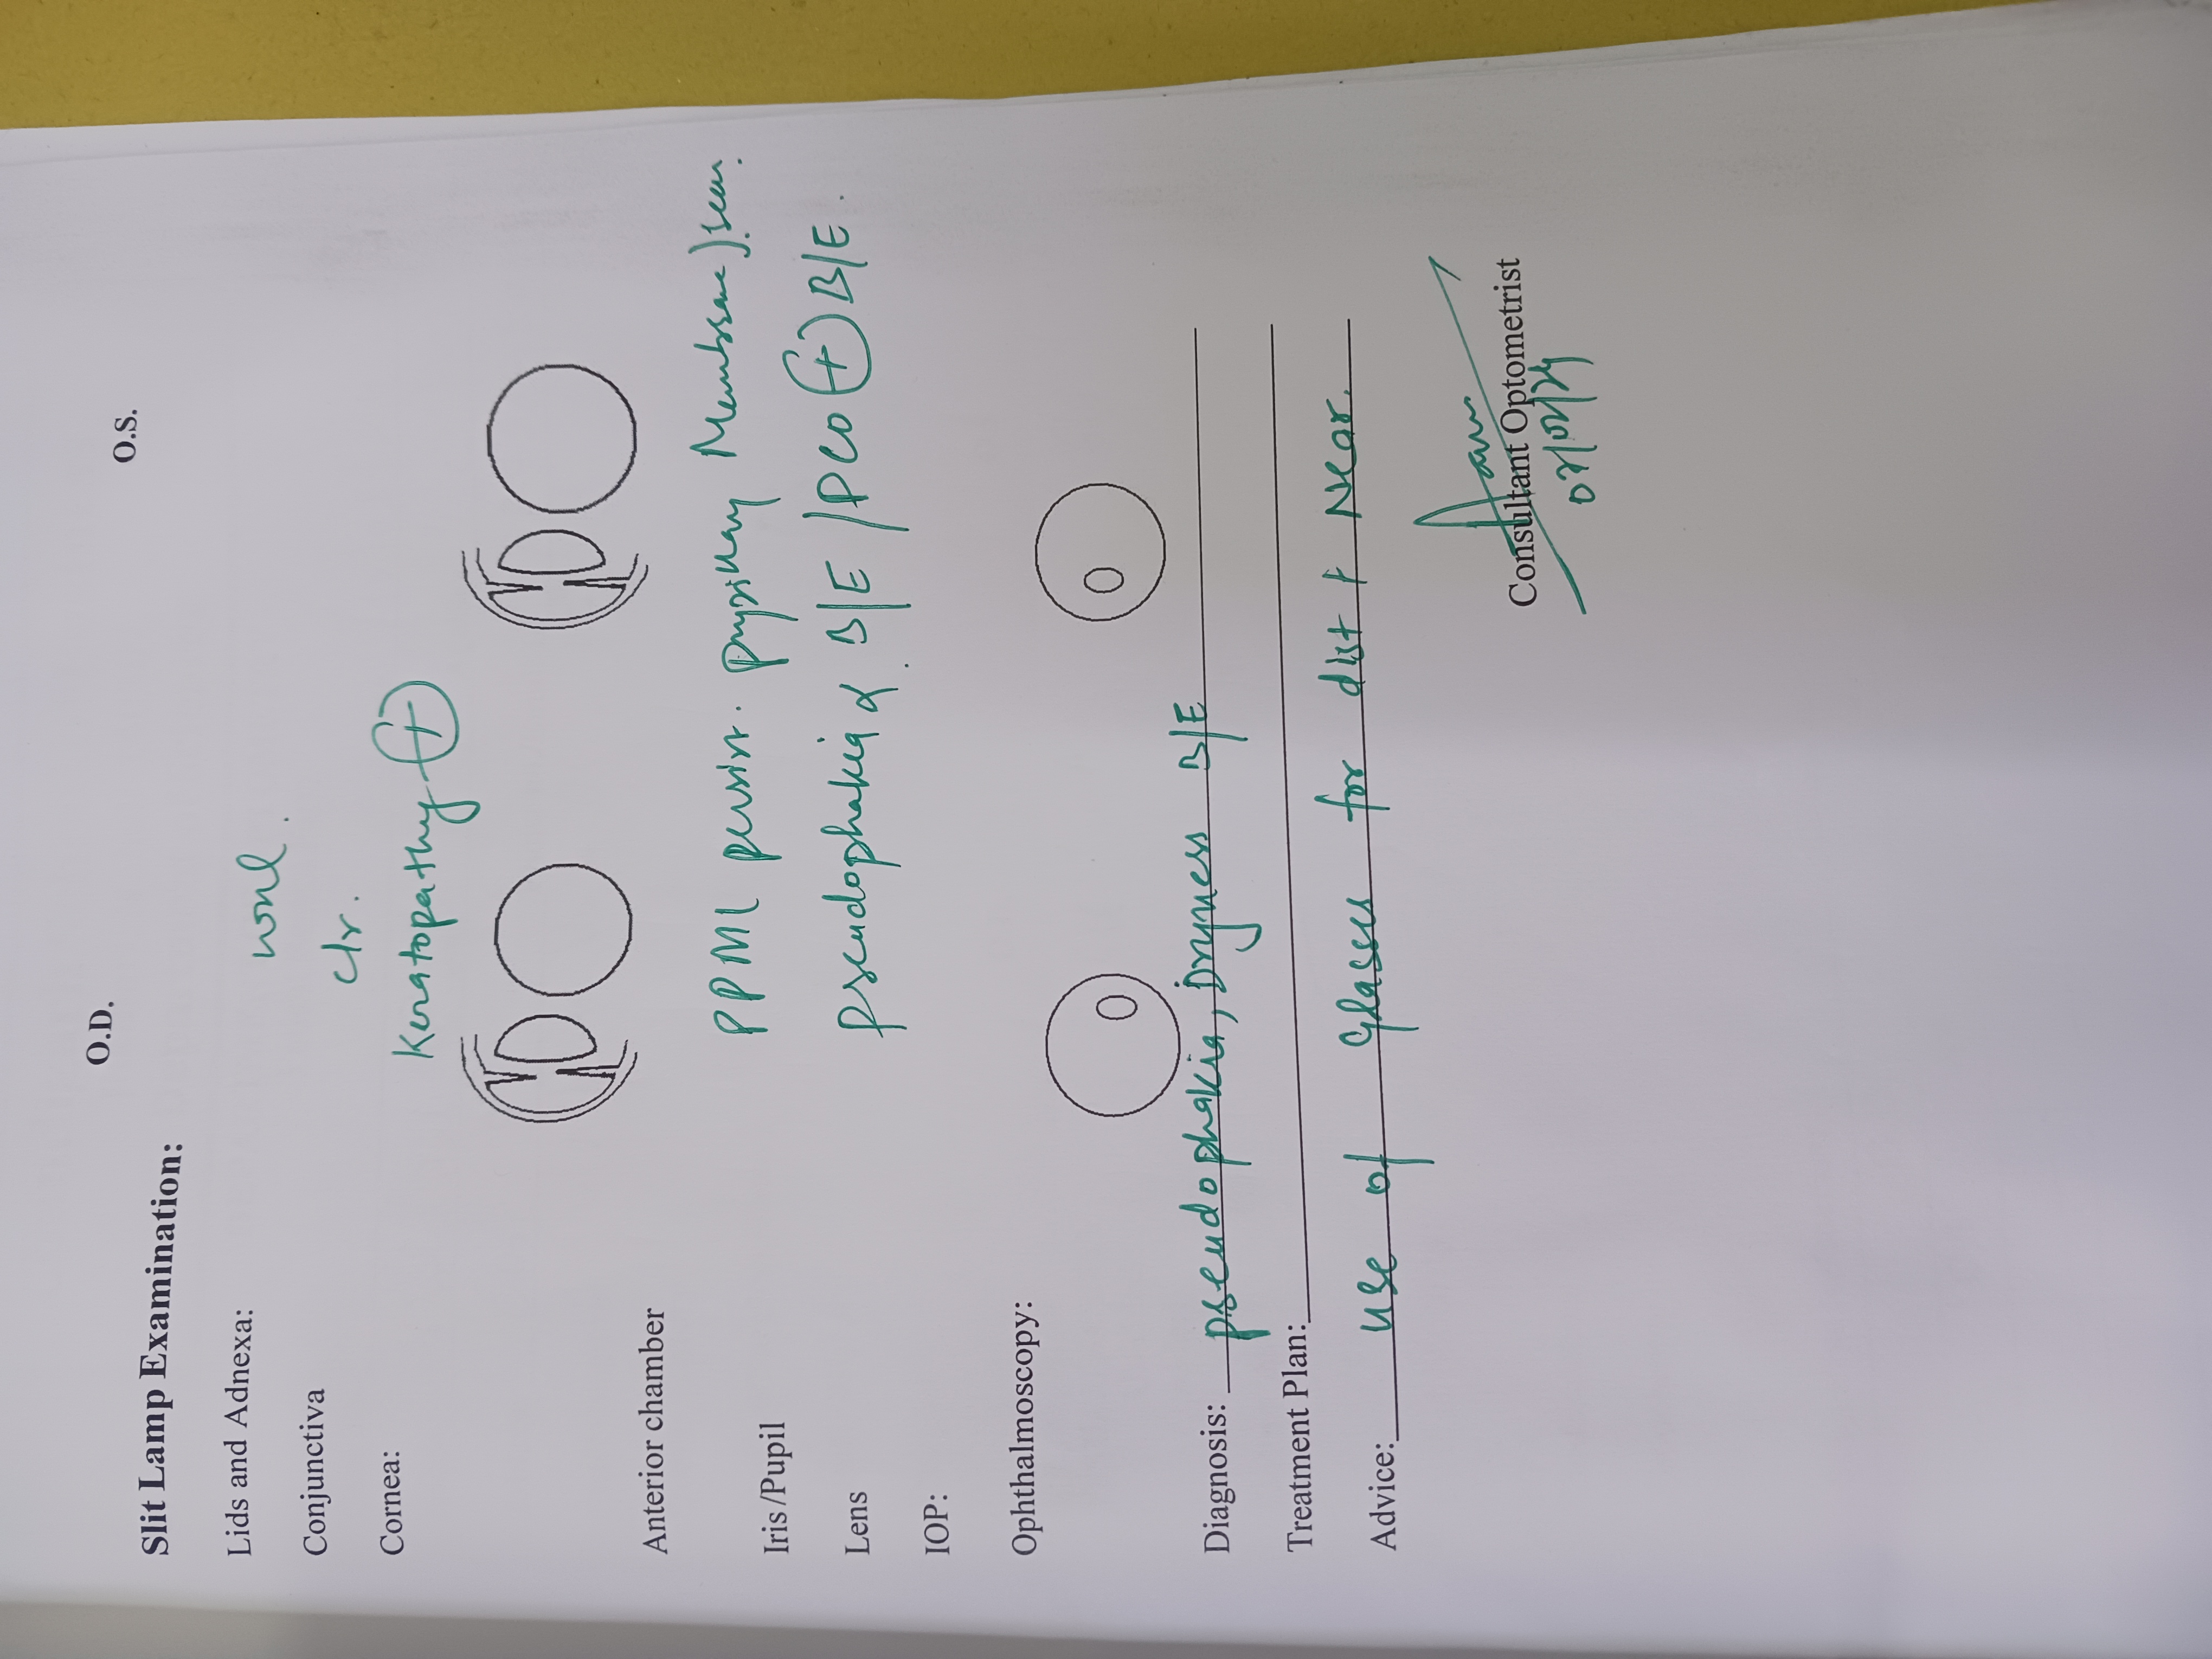 O.D. O.S.
Slit Lamp Examination:
Lids and Adnexa: wnl.
Conjunctiva clr.
Cornea: Keratopathy +
Anterior chamber
Iris/Pupil PPM( persist. pupillary Membrane) seen.
Lens pseudophakia B/E / PCO + B/E.
IOP:
Ophthalmoscopy:
Diagnosis: pseudophakia, Dryness B/E
Treatment Plan:
Advice: use of glasses for dist + Near.
Consultant Optometrist